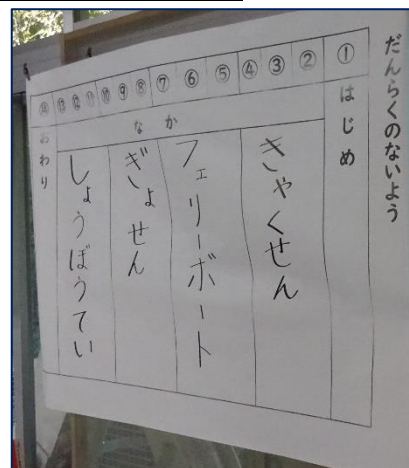 だんらくのないよう
① ② ③ ④ ⑤ ⑥ ⑦ ⑧ ⑨ ⑩ ⑪ ⑫ ⑬ ⑭
はじめ
なか
きゃくせん
フェリーボート
ぎょせん
しょうぼうてい
おわり